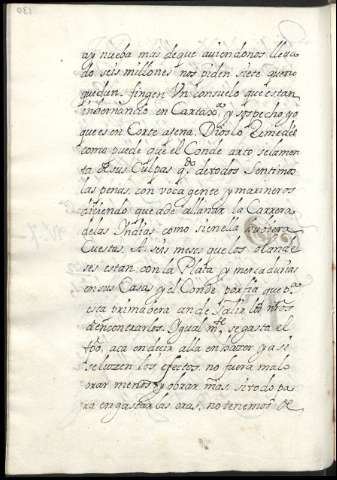 130
ay nueba mas de que auiendonos lleua
do seis millones nos piden siete, quiero
que dun. fingen Vn consuelo que estan
inbernando en Cartax.ª y sospecho yo
que es en Corte agena. Dios lo Remedie
como puede que el Conde arto se lamen
ta de sus Culpas q.do de todos Sentimos
las penas, con boca gente y marineros
diciendo que a de allanar la Carrera
de las Indias como si en ella hubiera
Cuestas. A seis meses que los olande
ses estan con la Plata y mercadurias
en sus Casas y el Conde porfia que p.ª
esta primabera an de salir los nros
a encontrarlos. Ygual m.te se gasta el
tpo, aca en decir alla en hazer y asi
se luzen los efectos. no fuera malo
orar menos y obrar mas. si todo pa
ra en gastar las oras, no tenemos de